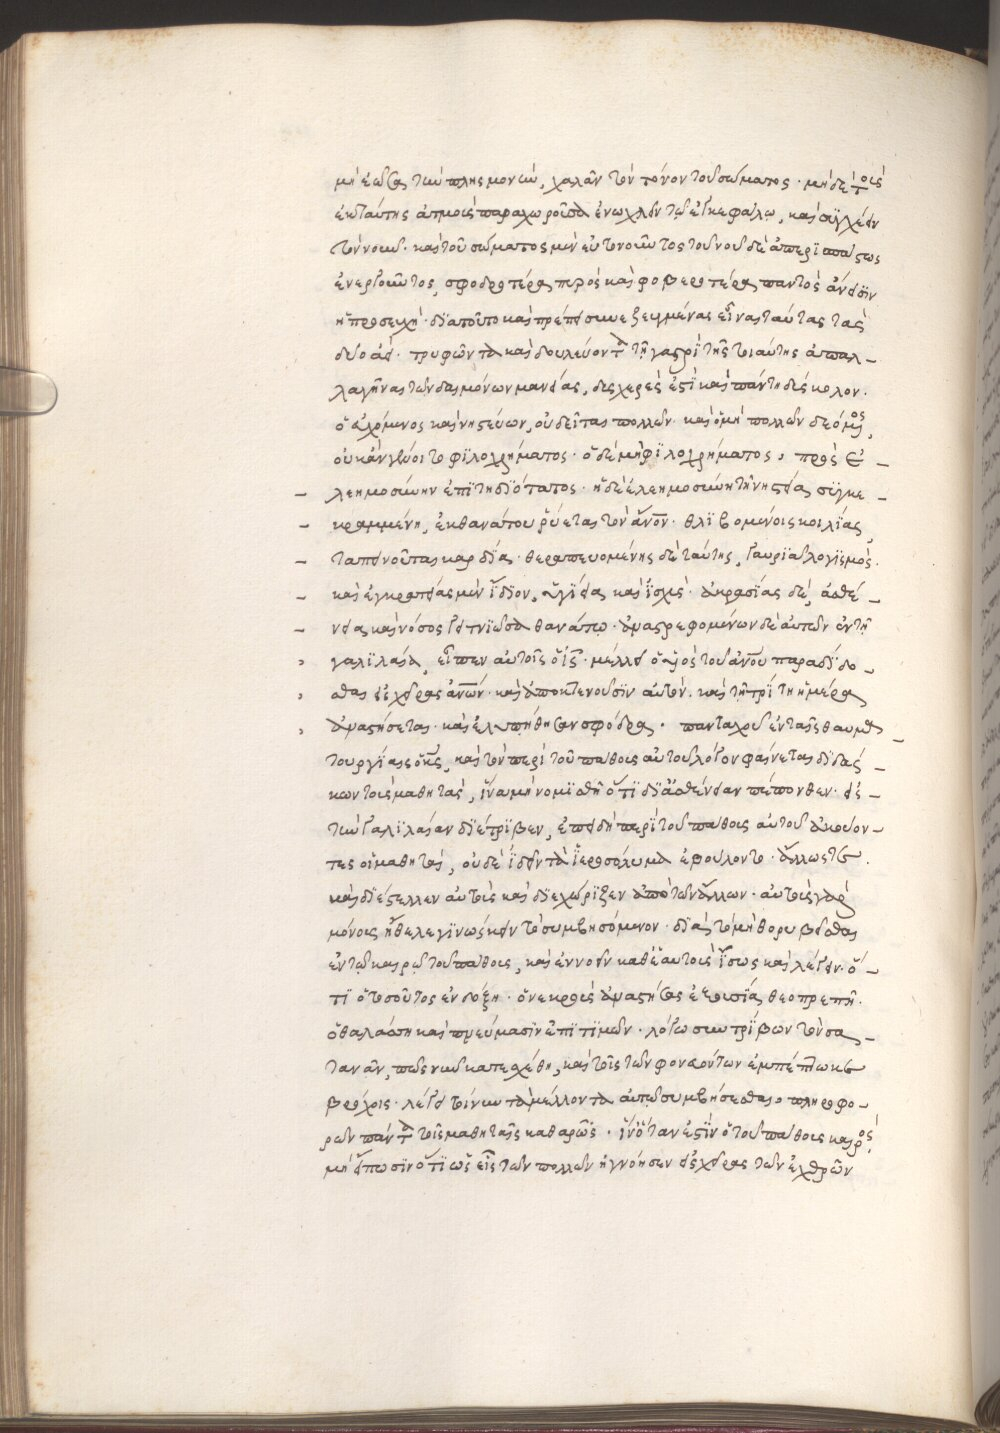 μὴ ἐώσης τὴν πλησμονὴν, χαλᾶν τὸν τόνον τοῦ σώματος· μὴ δὲ τοῖς
ἐκ ταύτης ἀτμοῖς παραχωροῦσα ἐνοχλεῖν τῷ ἐγκεφάλῳ, καὶ συγχέειν
τὸν νοῦν· καὶ τοῦ σώματος μὲν εὐτονοῦντος τοῦ νοῦ δὲ ἀπερισπάστως
ἐνεργοῦντος, σφοδροτέρα πυρὸς καὶ φοβερωτέρα παντὸς ἄνεισιν
ἡ προσευχή· διὰ τοῦτο καὶ πρέπει συνεζευγμένας εἶναι ταύτας τὰς
δύο ἀεί· τρυφῶντα καὶ δουλεύοντα τῇ γαστρὶ τῆς τοιαύτης ἀπαλ-
λαγῆναι τῶν δαιμόνων μανίας, δυσχερές ἐστὶ καὶ πάντη δύσκολον·
ὁ εὐχόμενος καὶ νηστεύων, οὐ δεῖται πολλῶν· καὶ ὁ μὴ πολλῶν δεόμενος,
οὐκ ἂν γένοιτο φιλοχρήματος· ὁ δὲ μὴ φιλοχρήματος, πρὸς ἐ-
λεημοσύνην ἐπιτηδειότατος· ἡ δὲ ἐλεημοσύνη τῇ νηστεία συγκε-
κραμμένη, ἐκ θανάτου ῥύεται τὸν ἄνον· θλιβομένοις κοιλίας,
ταπεινοῦται καρδία· θεραπευομένης δὲ ταύτης, γαυριᾶ λογισμός·
καὶ ἐγκρατείας μὲν ἴδιον, ὑγίεια καὶ ἰσχύς· ἀκρασίας δὲ, ἀσθέ-
νεια καὶ νόσος γειτνιῶσα θανάτῳ· ἀναστρεφομένων δὲ αὐτῶν ἐν τῇ
γαλιλαία, εἶπεν αὐτοῖς ὁ ις· μέλλει ὁ υἱὸς τοῦ ἀνου παραδίδο-
σθαι εἰς χεῖρας ἀνων· καὶ ἀποκτενοῦσιν αὐτόν· καὶ τῇ τρίτη ἡμέρα
ἀναστήσεται· καὶ ἐλυπήθησαν σφόδρα· πανταχοῦ ἐν ταῖς θαυμα-
τουργίαις ὁ κς, καὶ τὸν περὶ τοῦ πάθους αὐτοῦ λόγον φαίνεται διδάσ-
κων τοὺς μαθητάς, ἵνα μὴ νομισθῇ ὅτι δι' ἀσθένειαν πέπονθεν· εἰς
τὴν γαλιλαίαν διέτριβεν, ἐπειδὴ περὶ τοῦ πάθους αὐτοῦ ἀκούον-
τες οἱ μαθηταὶ, οὐδὲ ἰδεῖν τὰ ἱεροσόλυμα ἐβούλοντο· ἄλλως τε
καὶ διέστελλεν αὐτοὺς καὶ διεχώριζεν ἀπὸ τῶν ἄλλων· αὐτοὺς γὰρ
μόνους ἤθελε γινώσκειν τὸ συμβησόμενον· διὰ τὸ μὴ θορυβεῖσθαι
ἐν τῷ καιρῷ τοῦ πάθους, καὶ ἐννοεῖν καθ' ἑαυτοὺς ἴσως καὶ λέγειν· ὅ-
τι ὁ τοσοῦτος ἐν δόξη· ὁ νεκροὺς ἀναστήσας ἐξουσία θεοπρεπῆ·
ὁ θαλάσση καὶ πνεύμασιν ἐπιτιμῶν· λόγω συντρίβων τὸν σα-
τανᾶν, πῶς νῦν κατεσχέθη, καὶ τοῖς τῶν φονώντων ἐμπέπτωκε
βρόχοις· λέγει τοίνυν τὰ μέλλοντα αὐτῷ συμβήσεσθαι, πληροφο-
ρῶν πάντα τοῖς μαθηταῖς καθαρῶς· ἵν' ὅταν ἐστὶν ὁ τοῦ πάθους καιρός,
μὴ εἴπωσιν ὅτι ὡς εἷς τῶν πολλῶν ἠγνόησεν εἰς χεῖρας τῶν ἐχθρῶν